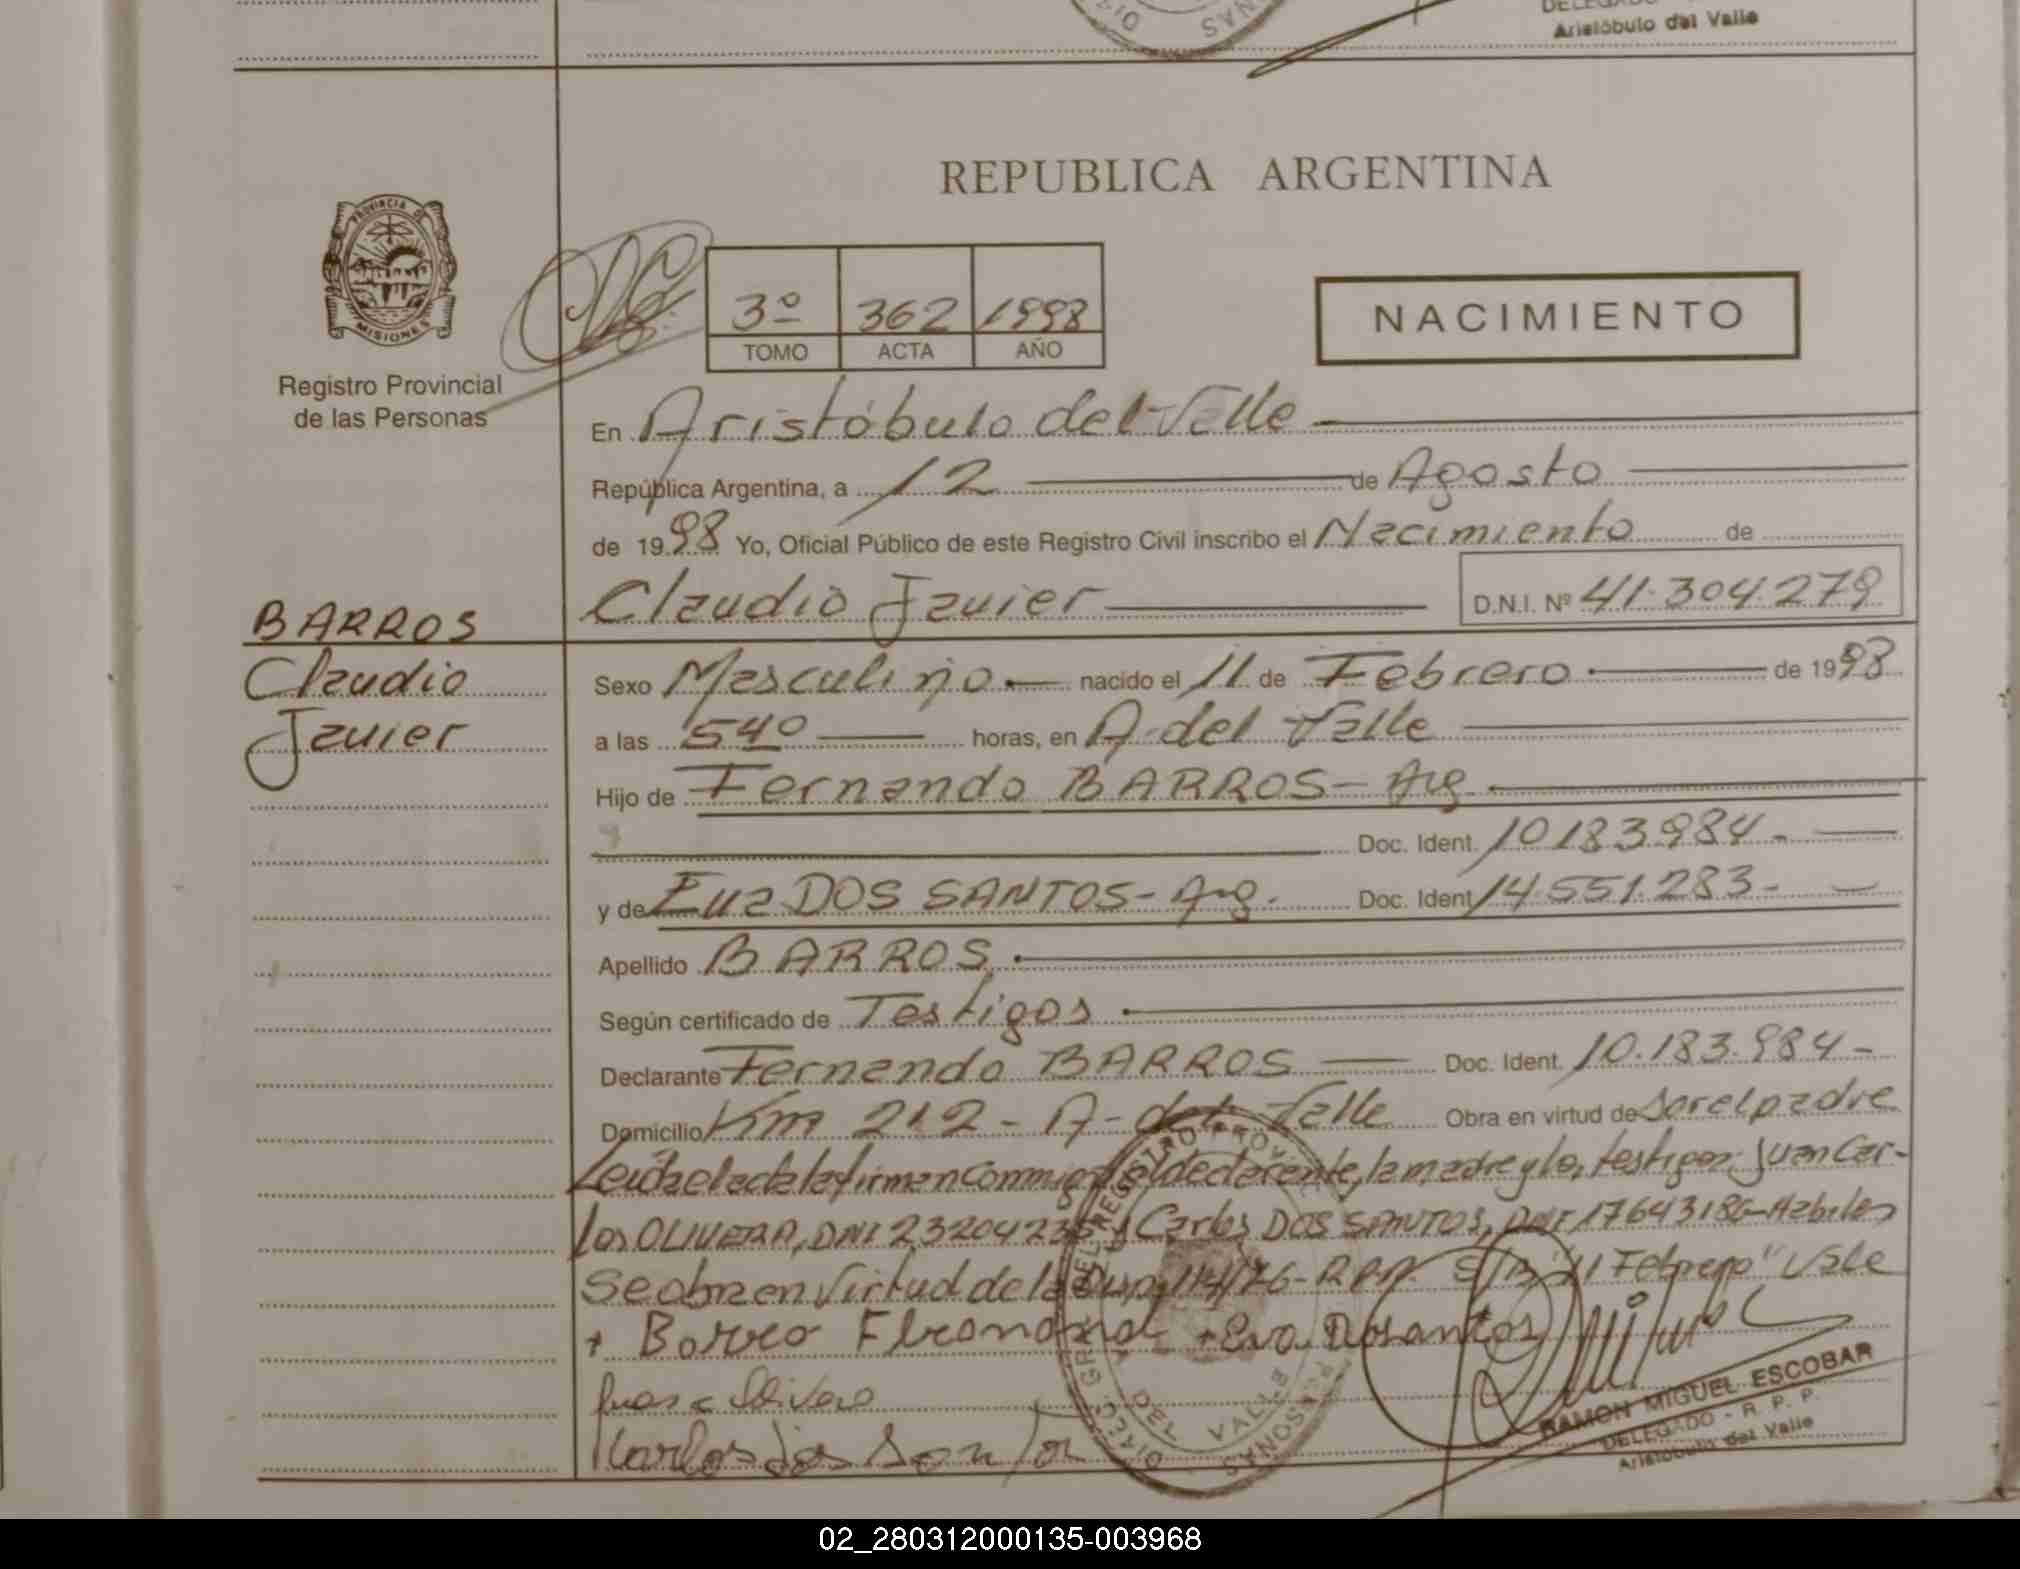 Aristóbulo del Valle
REPUBLICA ARGENTINA
PROVINCIA DE
MISIONES
Registro Provincial
de las Personas
3º 362 1998
TOMO ACTA AÑO
NACIMIENTO
En Aristóbulo del Valle
República Argentina, a 12 de Agosto
de 1998 Yo, Oficial Público de este Registro Civil inscribo el Nacimiento de
Claudio Javier D.N.I. Nº 41.304.279
BARROS
Claudio
Javier
Sexo Masculino nacido el 11 de Febrero de 1998
a las 5 40 horas, en A. del Valle
Hijo de Fernando BARROS - Arg.
Doc. Ident. 10.183.984-
y de Eva DOS SANTOS - Arg. Doc. Ident 14.551.283-
Apellido BARROS
Según certificado de Testigos
Declarante Fernando BARROS Doc. Ident. 10.183.984-
Domicilio Km 212 - A- del Valle Obra en virtud de Ser el padre
Leída el acta la firman conmigo el declarante, la madre y los testigos: Juan Car-
los OLIVERA, DNI 23204235 y Carlos DOS SANTOS, DNI 17643186- Habiles
Se obra en Virtud de la Disp. 114/76- R.P.P. S/R "11 Febrero" Vale
+ Barro +Eva Dosantos
Carlos dos Santos
RAMON MIGUEL ESCOBAR
DELEGADO - R. P. P.
Aristóbulo del Valle
02_280312000135-003968